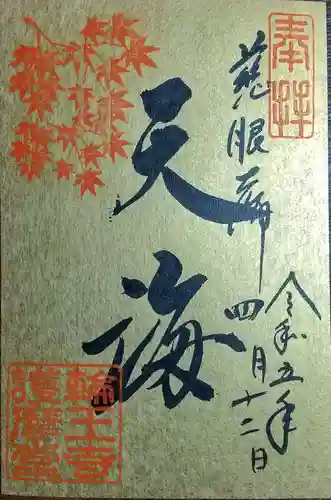 奉拝
慈眼
四月十二日
令和五年
天海
輪王寺
護摩堂